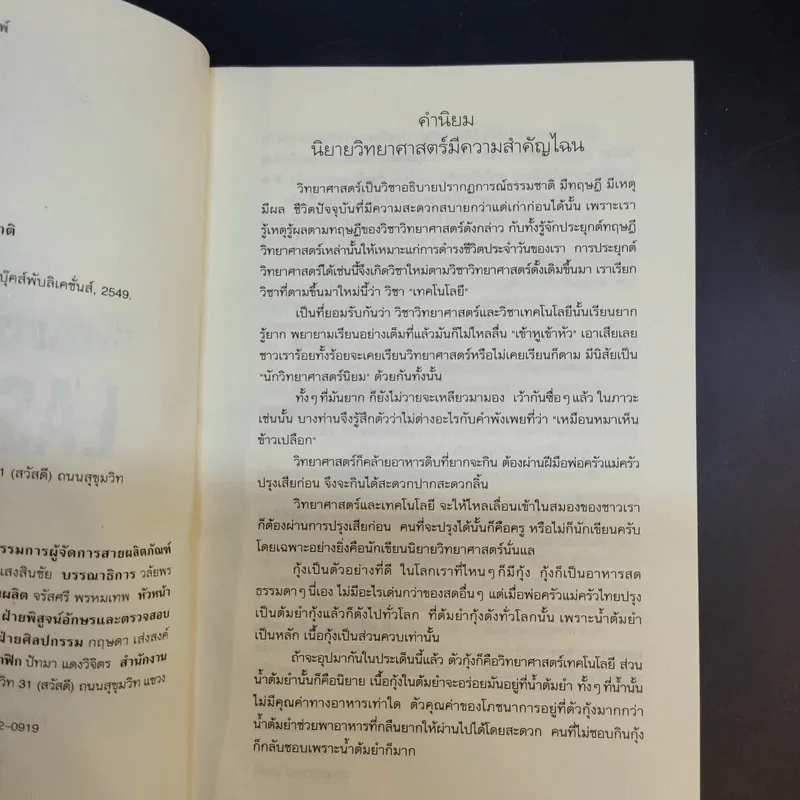 พ์
าติ
บุ๊คส์พับลิเคชั่นส์, 2549.
1 (สวัสดี) ถนนสุขุมวิท
รรมการผู้จัดการสายผลิตภัณฑ์
เสงสินชัย บรรณาธิการ วลัยพร
ผลิต จรัสศรี พรหมเทพ หัวหน้า
ฝ่ายพิสูจน์อักษรและตรวจสอบ
ฝ่ายศิลปกรรม กฤษดา เส่งสงค์
าฟิก ปัทมา แดงวิจิตร สำนักงาน
วิท 31 (สวัสดี) ถนนสุขุมวิท แขวง
2-0919
คำนิยม
นิยายวิทยาศาสตร์มีความสำคัญไฉน
วิทยาศาสตร์เป็นวิชาอธิบายปรากฏการณ์ธรรมชาติ มีทฤษฎี มีเหตุ
มีผล ชีวิตปัจจุบันที่มีความสะดวกสบายกว่าแต่เก่าก่อนได้นั้น เพราะเรา
รู้เหตุรู้ผลตามทฤษฎีของวิชาวิทยาศาสตร์ดังกล่าว กับทั้งรู้จักประยุกต์ทฤษฎี
วิทยาศาสตร์เหล่านั้นให้เหมาะแก่การดำรงชีวิตประจำวันของเรา การประยุกต์
วิทยาศาสตร์ได้เช่นนี้จึงเกิดวิชาใหม่ตามวิชาวิทยาศาสตร์ดั้งเดิมขึ้นมา เราเรียก
วิชาที่ตามขึ้นมาใหม่นี้ว่า วิชา "เทคโนโลยี"
เป็นที่ยอมรับกันว่า วิชาวิทยาศาสตร์และวิชาเทคโนโลยีนั้นเรียนยาก
รู้ยาก พยายามเรียนอย่างเต็มที่แล้วมันก็ไม่ไหลลื่น "เข้าหูเข้าหัว" เอาเสียเลย
ชาวเราร้อยทั้งร้อยจะเคยเรียนวิทยาศาสตร์หรือไม่เคยเรียนก็ตาม มีนิสัยเป็น
"นักวิทยาศาสตร์นิยม" ด้วยกันทั้งนั้น
ทั้งๆ ที่มันยาก ก็ยังไม่วายจะเหลียวมามอง เว้ากันซื่อๆ แล้ว ในภาวะ
เช่นนั้น บางท่านจึงรู้สึกตัวว่าไม่ต่างอะไรกับคำพังเพยที่ว่า "เหมือนหมาเห็น
ข้าวเปลือก"
วิทยาศาสตร์ก็คล้ายอาหารดิบที่ยากจะกิน ต้องผ่านฝีมือพ่อครัวแม่ครัว
ปรุงเสียก่อน จึงจะกินได้สะดวกปากสะดวกลิ้น
วิทยาศาสตร์และเทคโนโลยี จะให้ไหลเลื่อนเข้าในสมองของชาวเรา
ก็ต้องผ่านการปรุงเสียก่อน คนที่จะปรุงได้นั้นก็คือครู หรือไม่ก็นักเขียนครับ
โดยเฉพาะอย่างยิ่งคือนักเขียนนิยายวิทยาศาสตร์นั่นแล
กุ้งเป็นตัวอย่างที่ดี ในโลกเราที่ไหนๆ ก็มีกุ้ง กุ้งก็เป็นอาหารสด
ธรรมดาๆ นี่เอง ไม่มีอะไรเด่นกว่าของสดอื่นๆ แต่เมื่อพ่อครัวแม่ครัวไทยปรุง
เป็นต้มยำกุ้งแล้วก็ดังไปทั่วโลก ที่ต้มยำกุ้งดังทั่วโลกนั้น เพราะน้ำต้มยำ
เป็นหลัก เนื้อกุ้งเป็นส่วนควบเท่านั้น
ถ้าจะอุปมากันในประเด็นนี้แล้ว ตัวกุ้งก็คือวิทยาศาสตร์เทคโนโลยี ส่วน
น้ำต้มยำนั้นก็คือนิยาย เนื้อกุ้งในต้มยำจะอร่อยมันอยู่ที่น้ำต้มยำ ทั้งๆ ที่น้ำนั้น
ไม่มีคุณค่าทางอาหารเท่าใด ตัวคุณค่าของโภชนาการอยู่ที่ตัวกุ้งมากกว่า
น้ำต้มยำช่วยพาอาหารที่กลืนยากให้ผ่านไปได้โดยสะดวก คนที่ไม่ชอบกินกุ้ง
ก็กลับชอบเพราะน้ำต้มยำก็มาก